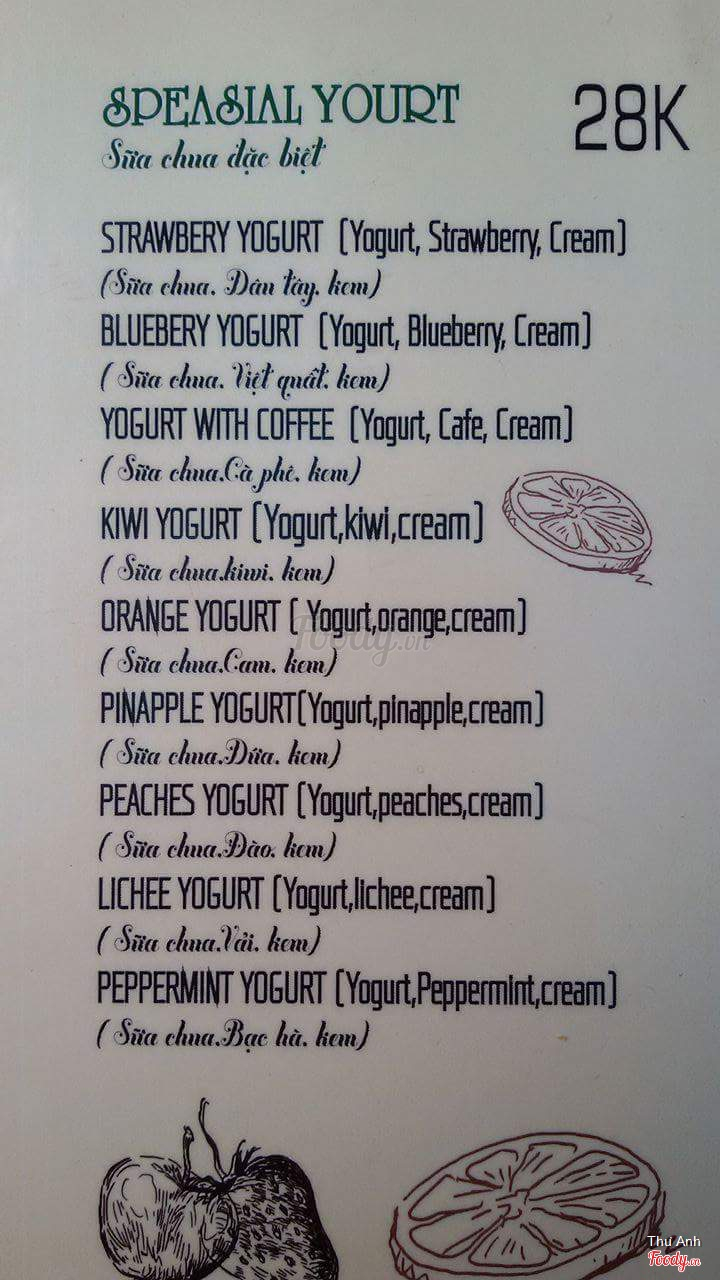 SPEASIAL YOURT 28K
Sữa chua đặc biệt
STRAWBERY YOGURT (Yogurt, Strawberry, Cream)
(Sữa chua. Dâu tây. kem)
BLUEBERY YOGURT (Yogurt, Blueberry, Cream)
( Sữa chua. Việt quất. kem)
YOGURT WITH COFFEE (Yogurt, Cafe, Cream)
( Sữa chua.Cà phê. kem)
KIWI YOGURT (Yogurt,kiwi,cream)
( Sữa chua.kiwi. kem)
ORANGE YOGURT ( Yogurt,orange,cream)
( Sữa chua.Cam. kem)
PINAPPLE YOGURT(Yogurt,pinapple,cream)
( Sữa chua.Dứa. kem)
PEACHES YOGURT (Yogurt,peaches,cream)
( Sữa chua.Đào. kem)
LICHEE YOGURT (Yogurt,lichee,cream)
( Sữa chua.Vải. kem)
PEPPERMINT YOGURT (Yogurt,Peppermint,cream)
( Sữa chua.Bạc hà. kem)
Foody.vn
Thư Anh
Foody.vn